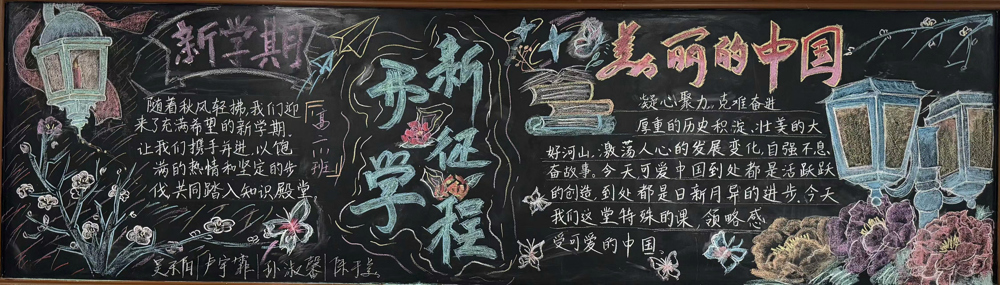 新学期
随着秋风轻拂,我们迎
来了充满希望的新学期.
让我们携手并进,以饱
满的热情和坚定的步
伐,共同踏入知识殿堂
「高一(1)班」
卢宇霏 孙淑馨
开学
新征程
美丽的中国
凝心聚力,克难奋进
厚重的历史积淀、壮美的大
好河山、激荡人心的发展变化,自强不息、
奋故事。今天可爱中国到处都是活跃跃
的创造,到处都是日新月异的进步,今天
我们这堂特殊的课,领略感
受可爱的中国